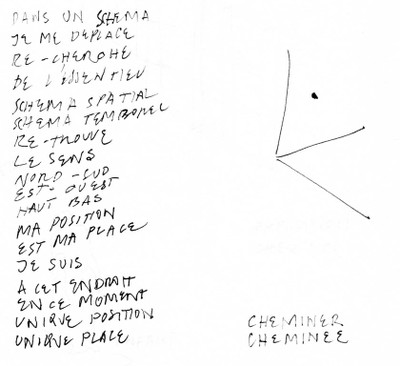 DANS UN SCHEMA
JE ME DEPLACE
RE-CHERCHE
DE L'ESSENTIEL
SCHEMA SPATIAL
SCHEMA TEMPOREL
RE-TROUVE
LE SENS
NORD-SUD
EST-OUEST
HAUT BAS
MA POSITION
EST MA PLACE
JE SUIS
A CET ENDROIT
EN CE MOMENT
UNIQUE POSITION
UNIQUE PLACE
CHEMINER
CHEMINEE